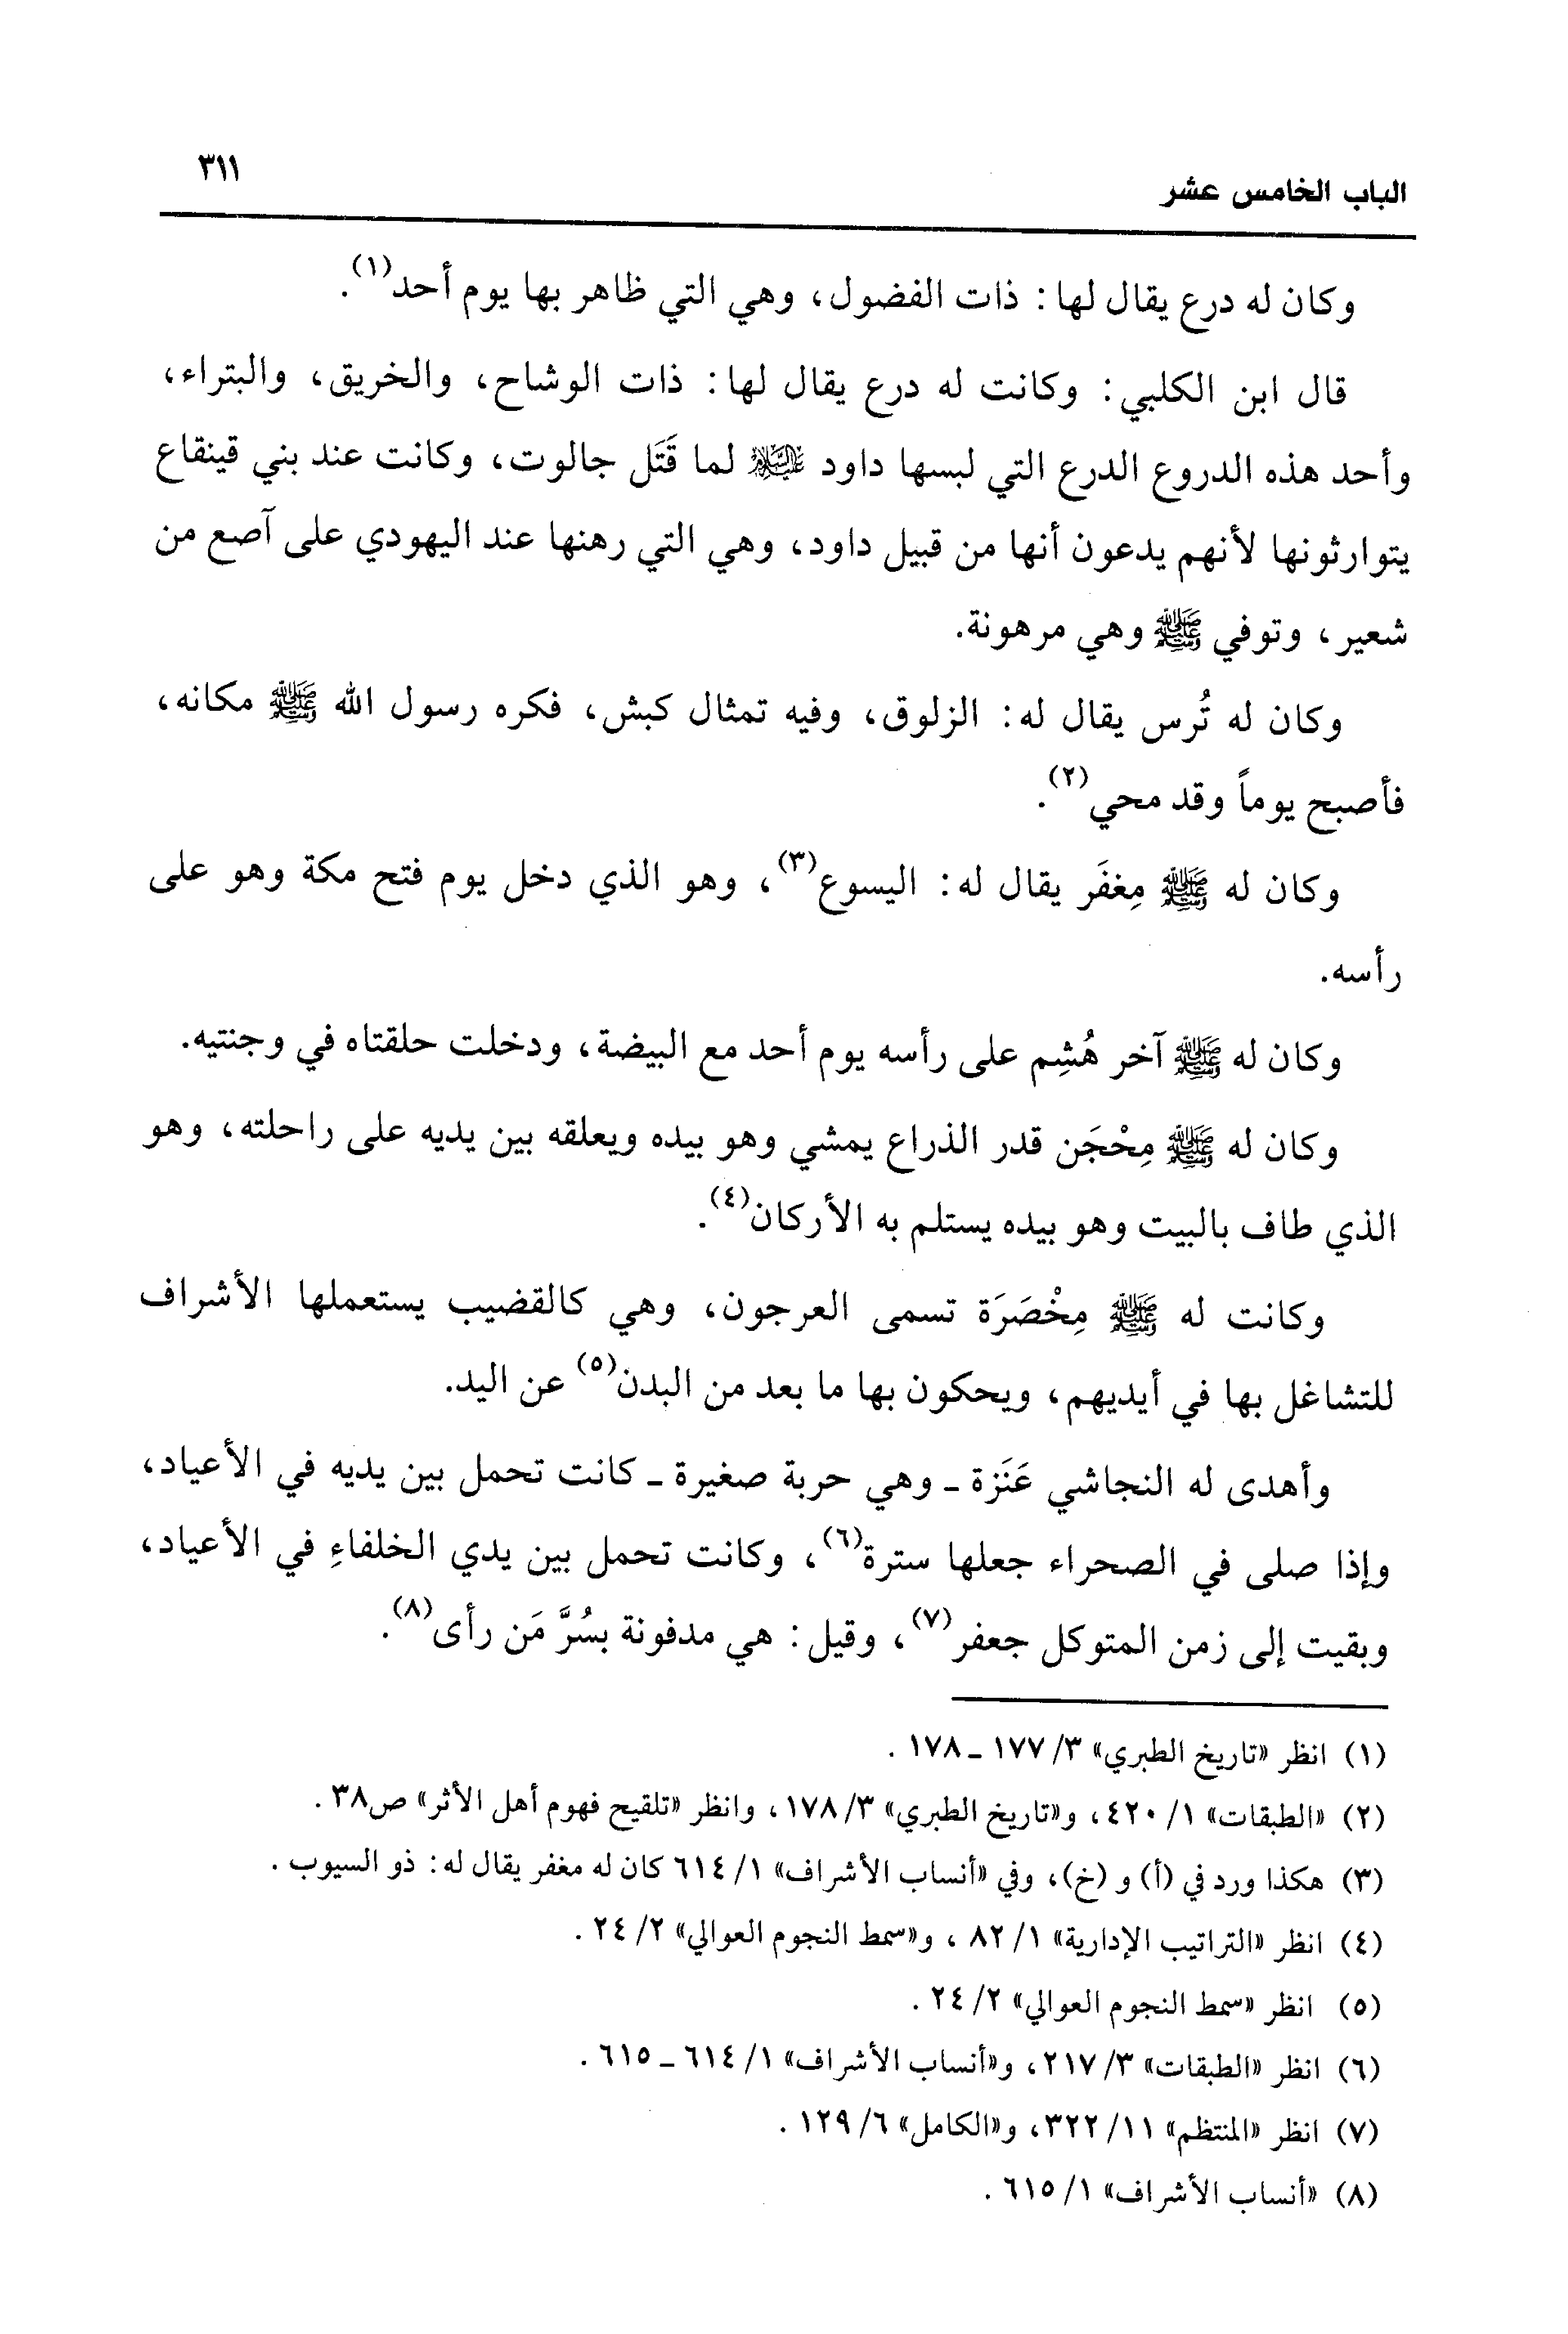 ٣١١
الباب الخامس عشر
وكان له درع يقال لها: ذات الفضول، وهي التي ظاهر بها يوم أحد(١).
قال ابن الكلبي: وكانت له درع يقال لها: ذات الوشاح، والخريق، والبتراء،
وأحد هذه الدروع الدرع التي لبسها داود عليه السلام لما قَتَل جالوت، وكانت عند بني قينقاع
يتوارثونها لأنهم يدعون أنها من قبيل داود، وهي التي رهنها عند اليهودي على آصع من
شعير، وتوفي ﷺ وهي مرهونة.
وكان له تُرس يقال له: الزلوق، وفيه تمثال كبش، فكره رسول الله ﷺ مكانه،
فأصبح يوماً وقد محي(٢).
وكان له ﷺ مِغفَر يقال له: اليسوع(٣)، وهو الذي دخل يوم فتح مكة وهو على
رأسه.
وكان له ﷺ آخر هُشِم على رأسه يوم أحد مع البيضة، ودخلت حلقتاه في وجنتيه.
وكان له ﷺ مِحْجَن قدر الذراع يمشي وهو بيده ويعلقه بين يديه على راحلته، وهو
الذي طاف بالبيت وهو بيده يستلم به الأركان(٤).
وكانت له ﷺ مِخْصَرَة تسمى العرجون، وهي كالقضيب يستعملها الأشراف
للتشاغل بها في أيديهم، ويحكون بها ما بعد من البدن(٥) عن اليد.
وأهدى له النجاشي عَنَزة ـ وهي حربة صغيرة ـ كانت تحمل بين يديه في الأعياد،
وإذا صلى في الصحراء جعلها سترة(٦)، وكانت تحمل بين يدي الخلفاءِ في الأعياد،
وبقيت إلى زمن المتوكل جعفر(٧)، وقيل: هي مدفونة بسُرَّ مَن رأى(٨).
(١) انظر «تاريخ الطبري» ٣/ ١٧٧ ـ ١٧٨.
(٢) «الطبقات» ١/ ٤٢٠، و«تاريخ الطبري» ٣/ ١٧٨، وانظر «تلقيح فهوم أهل الأثر» ص٣٨.
(٣) هكذا ورد في (أ) و (خ)، وفي «أنساب الأشراف» ١/ ٦١٤ كان له مغفر يقال له: ذو السيوب.
(٤) انظر «التراتيب الإدارية» ١/ ٨٢، و«سمط النجوم العوالي» ٢/ ٢٤.
(٥) انظر «سمط النجوم العوالي» ٢/ ٢٤.
(٦) انظر «الطبقات» ٣/ ٢١٧، و«أنساب الأشراف» ١/ ٦١٤ ـ ٦١٥.
(٧) انظر «المنتظم» ١١/ ٣٢٢، و«الكامل» ٦/ ١٢٩.
(٨) «أنساب الأشراف» ١/ ٦١٥.